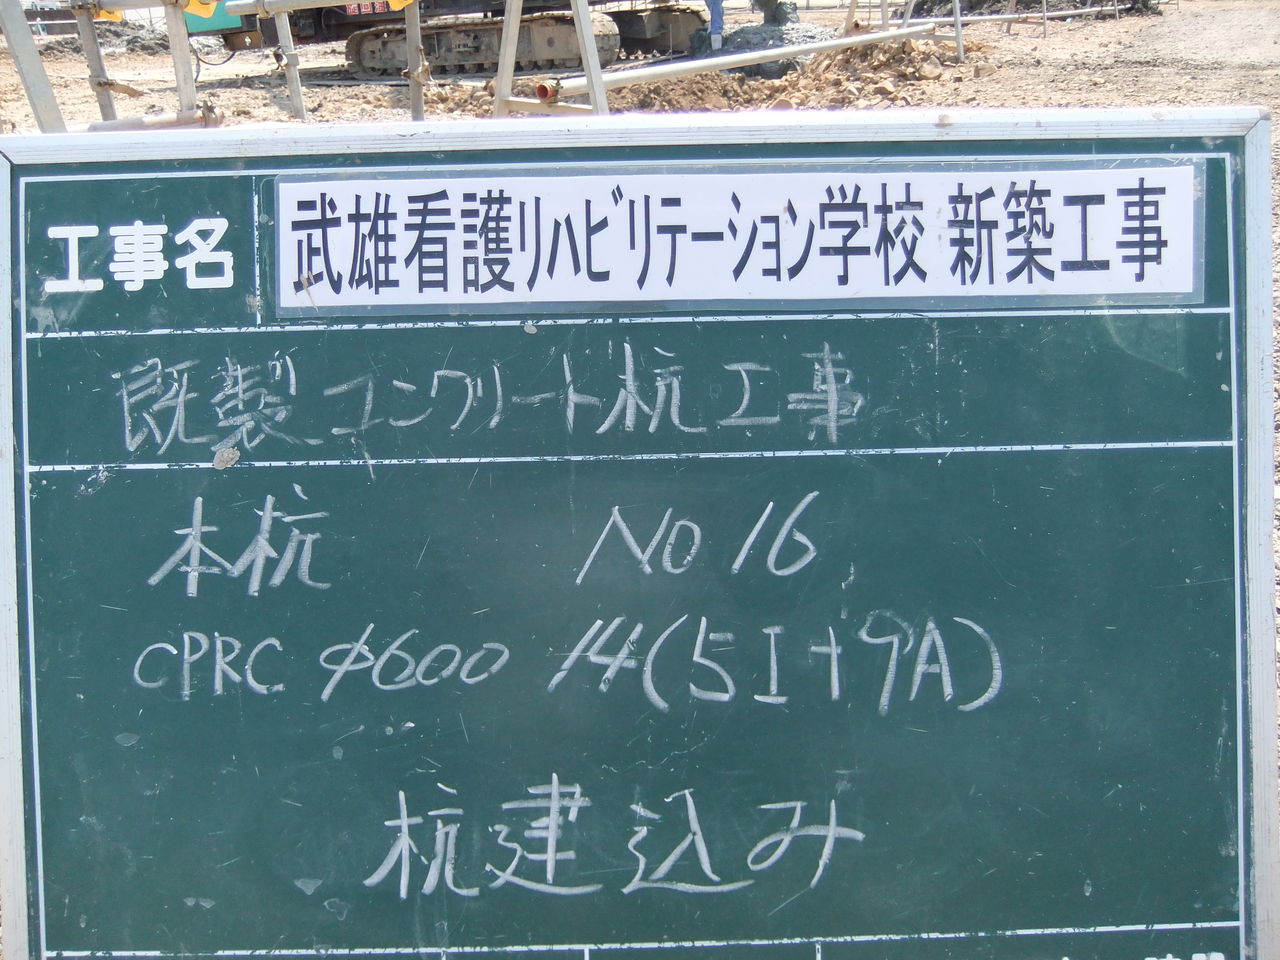 工事名 武雄看護リハビリテーション学校 新築工事
既製コンクリート杭工事
本杭 No 16
CPRC φ600 14(5I+9A)
杭建込み